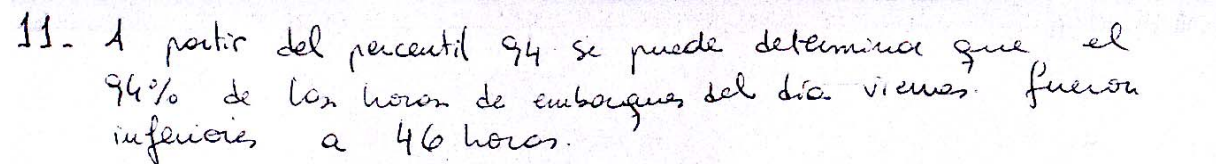 11- A partir del percentil 94 se puede determinar que el
94% de las horas de embarques del día viernes. fueron
inferiores a 46 horas.